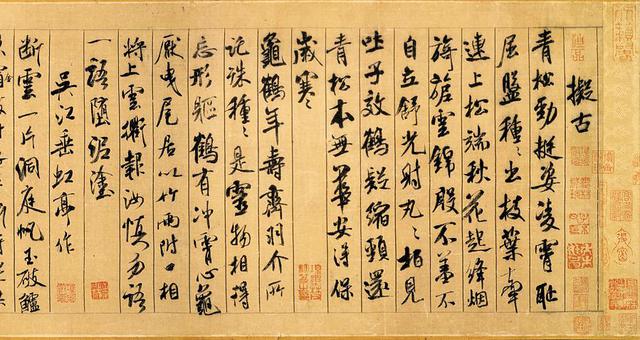 擬古
青松勁挺姿凌霄恥
屈盤種〻出枝葉牽
連上松端秋花起絳烟
旖旎雲錦殷不羞不
自立舒光射丸〻柏見
吐子效鶴疑縮頸還
青松本無華安得保
歲寒
龜鶴年壽齊羽介所
託殊種〻是靈物相得
忘形軀鶴有冲霄心龜
厭曳尾居以竹兩附口相
將上雲衢報汝慎勿語
一語墮泥塗
吳江垂虹亭作
斷雲一片洞庭帆玉破鱸